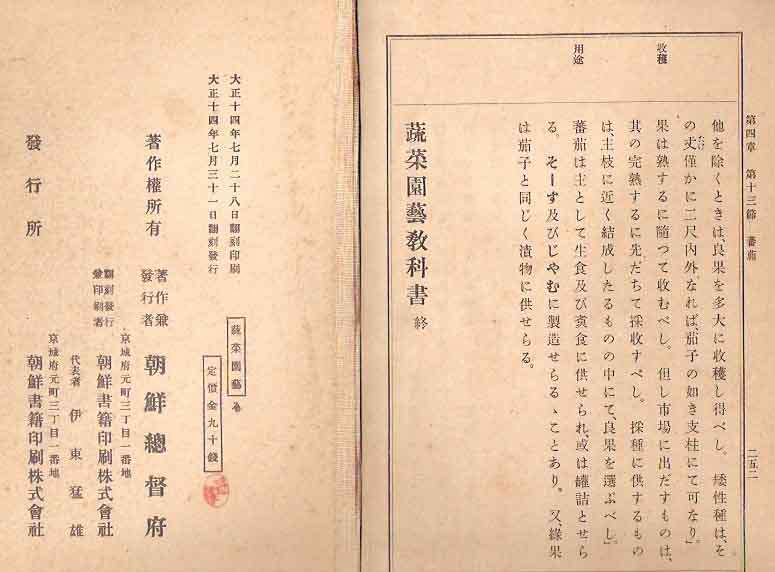 第四章　第十三節　蕃茄
二五二
收穫
用途
他を除くときは、良果を多大に收穫し得べし。矮性種は、そ
の丈僅かに二尺內外なれば、茄子の如き支柱にて可なり」
果は熟するに隨つて收むべし。但し市場に出だすものは、
其の完熟するに先だちて採收すべし。採種に供するもの
は、主枝に近く結成したるものの中にて、良果を選ぶべし」
蕃茄は主として生食及び煑食に供せられ、或は罐詰とせら
る。そーす及びじやむに製造せらるゝことあり。又、綠果
は茄子と同じく漬物に供せらる。
蔬菜園藝教科書 終
大正十四年七月二十八日翻刻印刷
大正十四年七月三十一日翻刻發行
蔬菜園藝
定價金九十錢
著作權所有
著作兼發行者
朝鮮總督府
京城府元町三丁目一番地
翻刻發行兼印刷者
朝鮮書籍印刷株式會社
代表者　伊東猛雄
發行所
京城府元町三丁目一番地
朝鮮書籍印刷株式會社